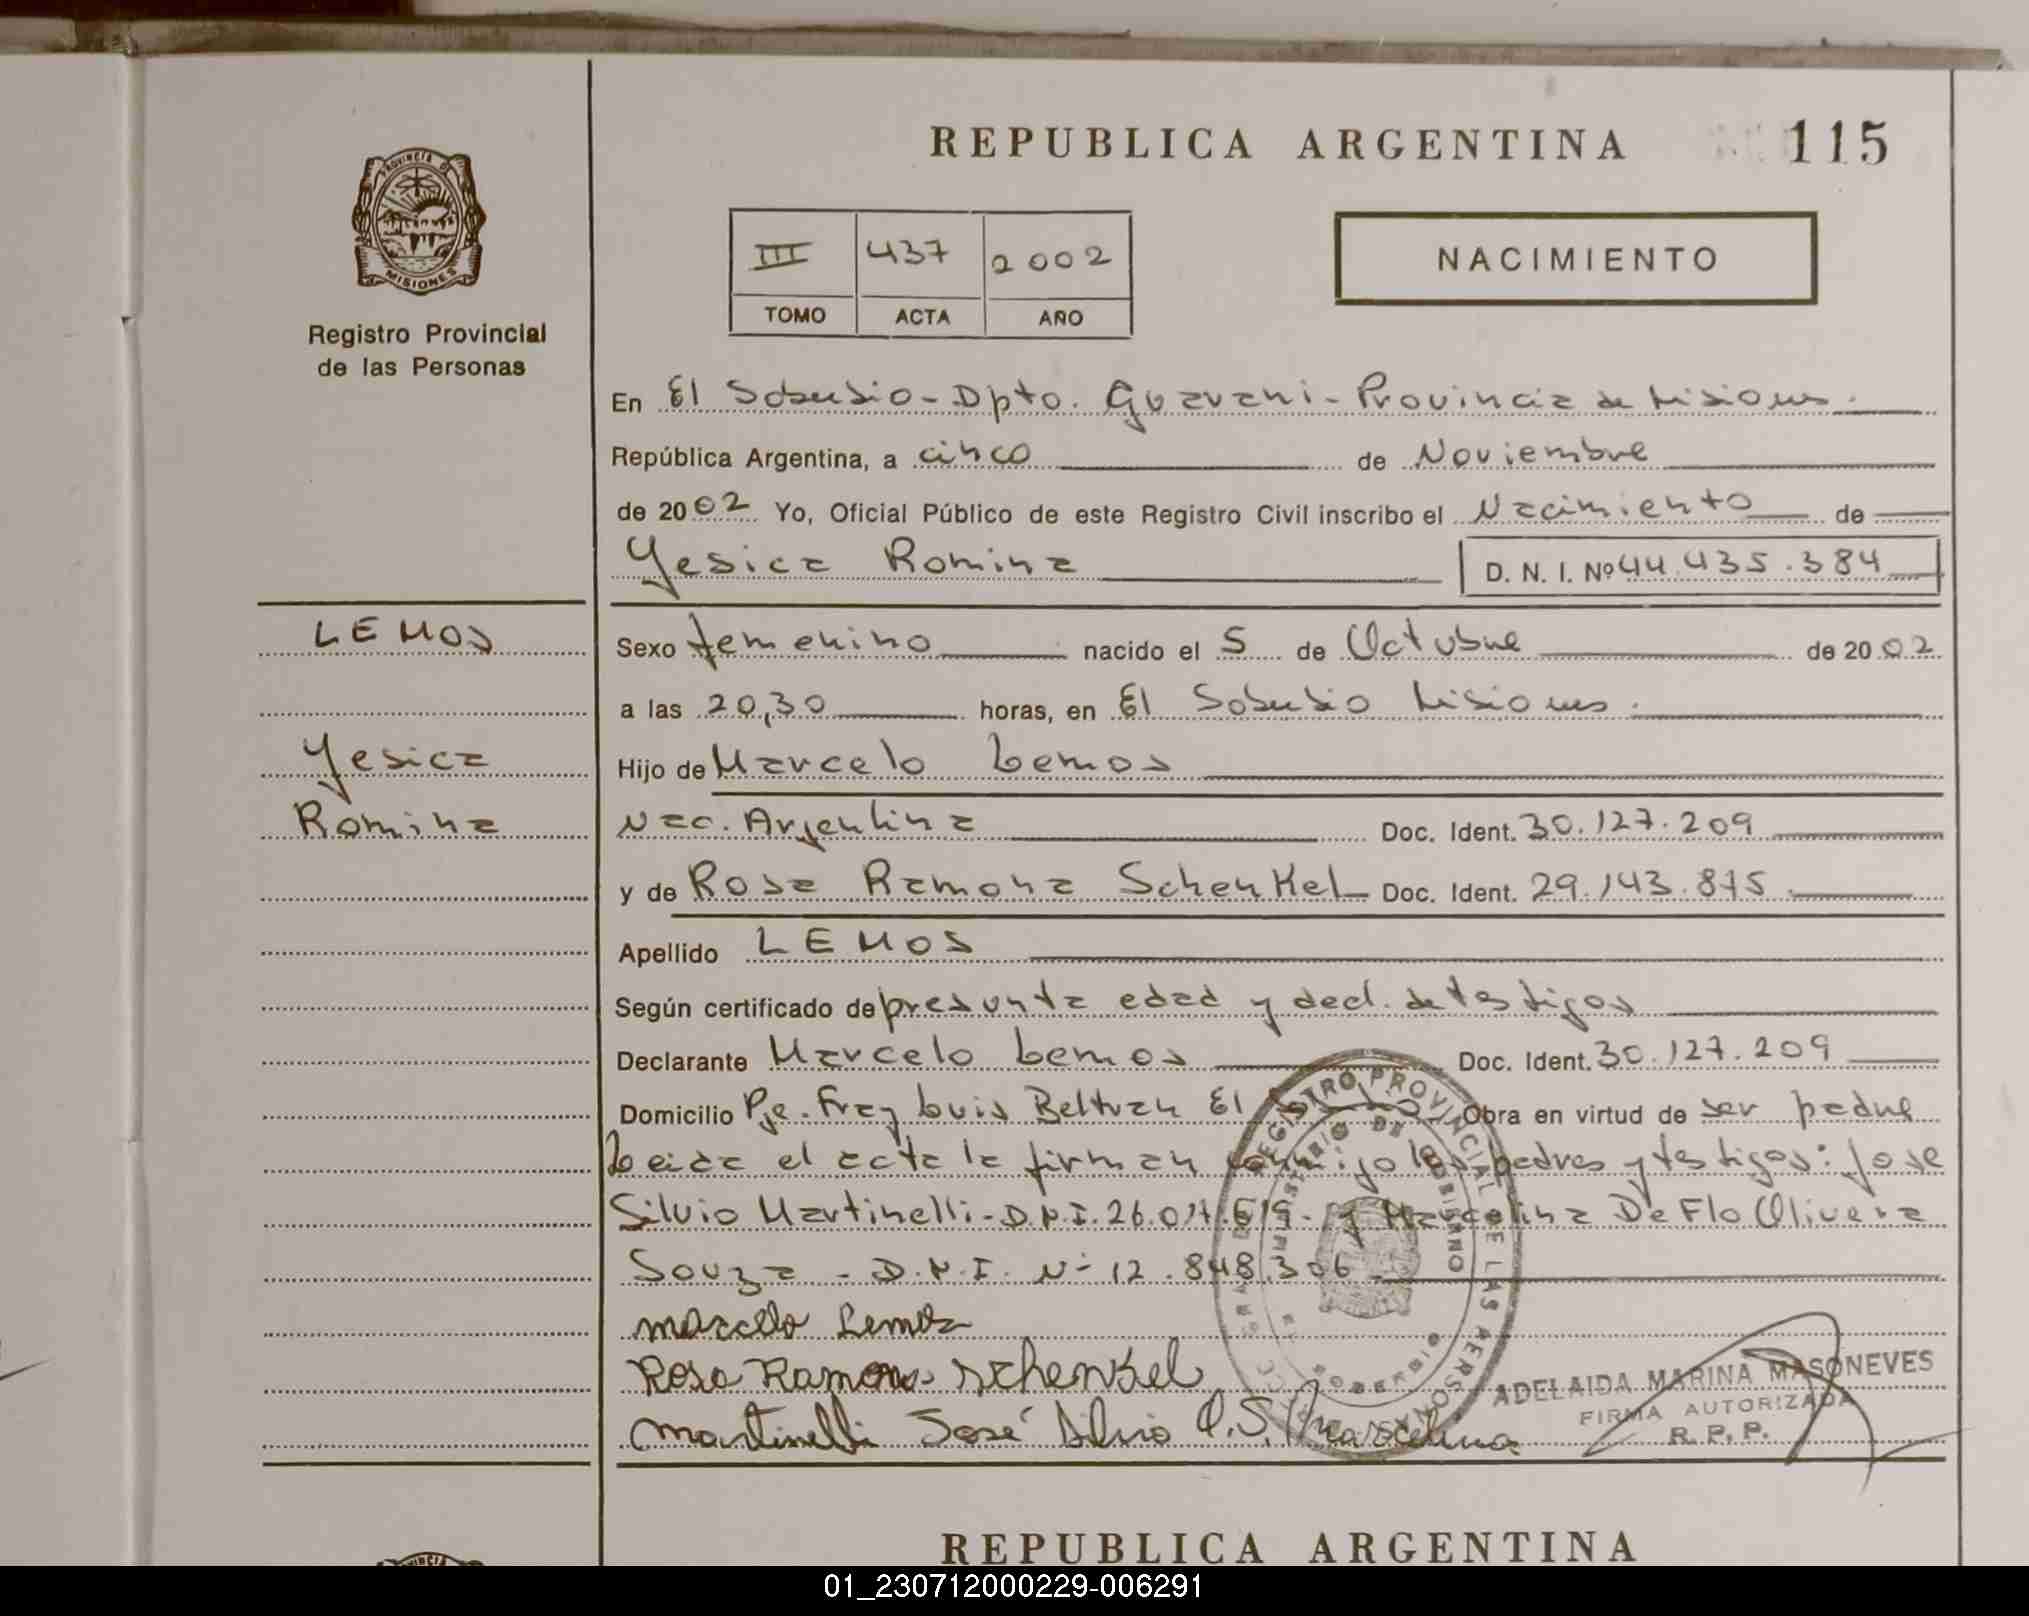 REPUBLICA ARGENTINA
115
PROVINCIA DE
MISIONES
Registro Provincial
de las Personas
III 437 2002
TOMO ACTA AÑO
NACIMIENTO
En El Soberbio - Dpto. Guarani - Provincia de Misiones.
República Argentina, a cinco de Noviembre
de 2002 Yo, Oficial Público de este Registro Civil inscribo el Nacimiento de
Yesica Romina D. N. I. Nº 44.435.384
LEMOS
Yesica
Romina
Sexo femenino nacido el 5 de Octubre de 2002
a las 20,30 horas, en El Soberbio Misiones.
Hijo de Marcelo Lemos
Nac. Argentina Doc. Ident. 30.127.209
y de Rosa Ramona Schenkel Doc. Ident. 29.143.875.
Apellido LEMOS
Según certificado de presunta edad y decl. de testigos
Declarante Marcelo Lemos Doc. Ident. 30.127.209
Domicilio Pje. Fray Luis Beltran El Obra en virtud de ser padre
Leida el acta la firman conmigo los padres y testigos: Jose
Silvio Martinelli - D.N.I. 26.017.619 - y Marcelina De Flo Olivera
Souza - D.N.I. Nº 12.848.306
Marcelo Lemos
Rosa Ramona Schenkel
Martinelli José Silvio O.S. Marcelina
REGISTRO PROVINCIAL DE LAS PERSONAS
MINISTERIO DE GOBIERNO
EL SOBERBIO
ADELAIDA MARINA MASONEVES
FIRMA AUTORIZADA
R. P. P.
REPUBLICA ARGENTINA
01_230712000229-006291